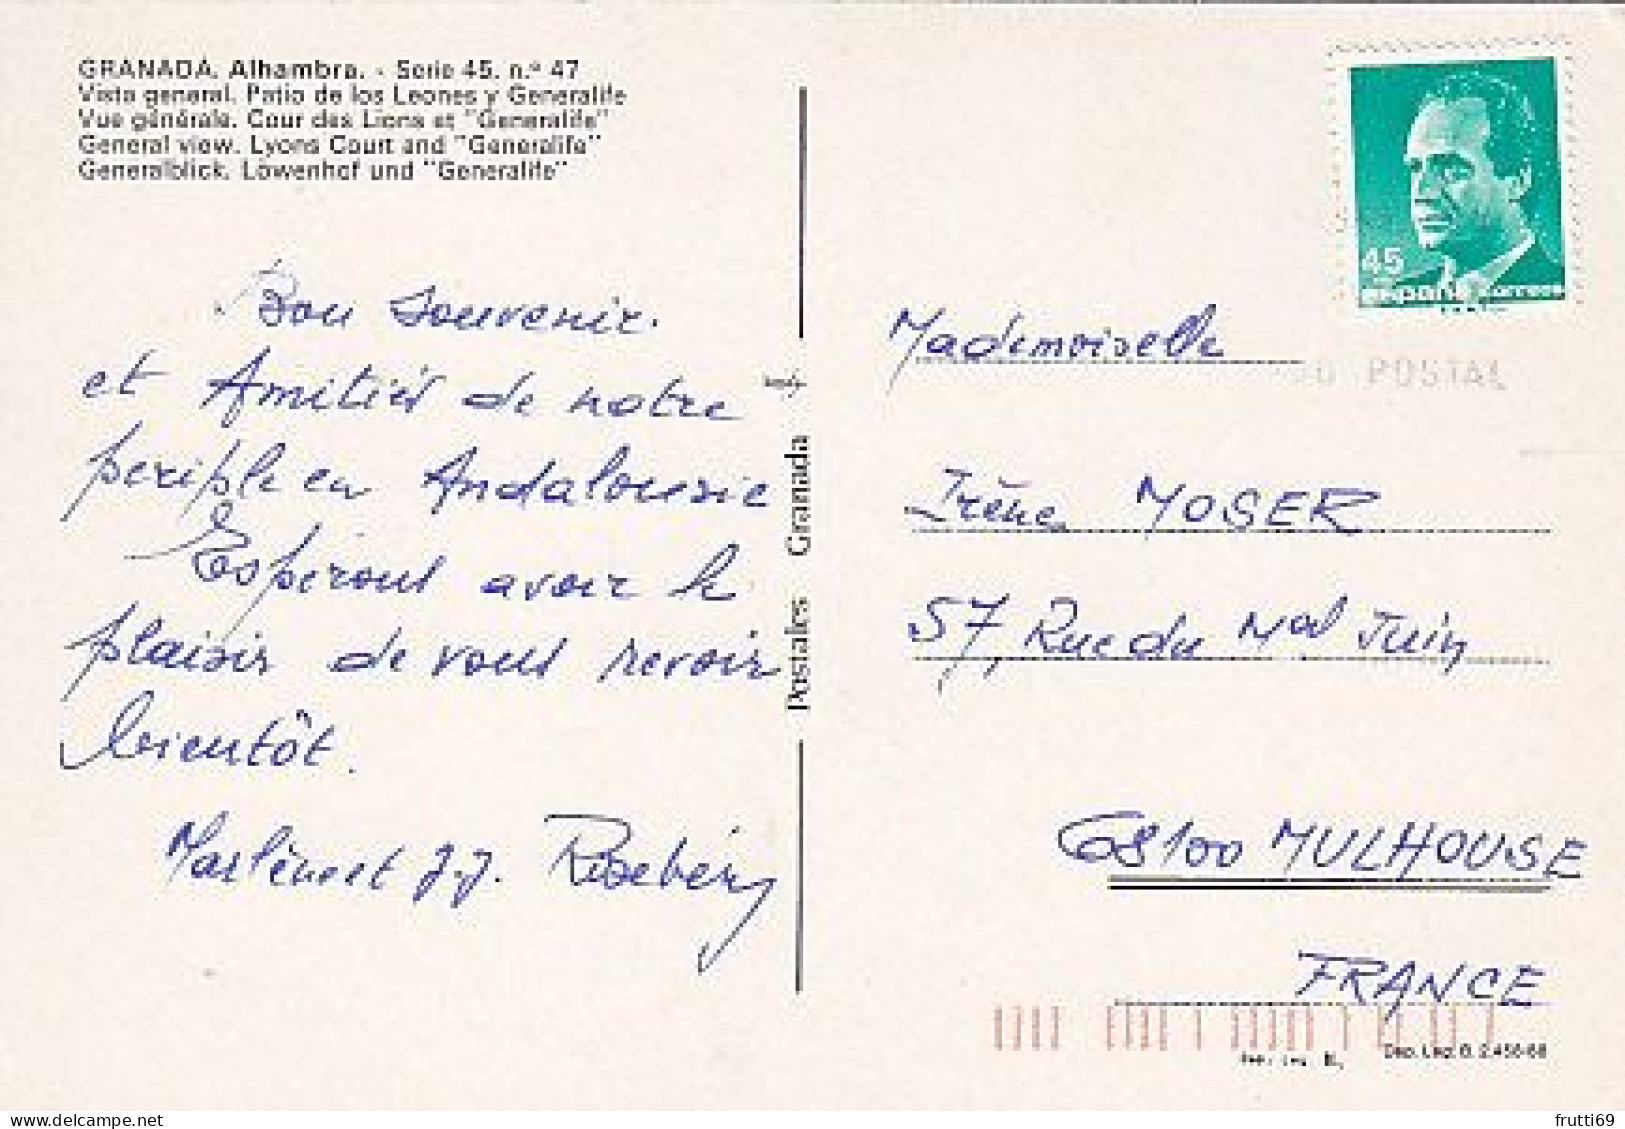 GRANADA. Alhambra. - Serie 45. n.º 47
Vista general. Patio de los Leones y Generalife
Vue générale. Cour des Lions et "Generalife"
General view. Lyons Court and "Generalife"
Generalblick. Löwenhof und "Generalife"
Bon souvenir.
et Amitiés de notre
periple en Andalousie
Espérons avoir le
plaisir de vous revoir
bientôt.
Marlène et J.J.
Postales Granada
45
españa correos
POSTAL
Mademoiselle
Irène MOSER
57, Rue du Mal Juin
68100 MULHOUSE
FRANCE
Dep. Leg. B. 2.456-68
frutti69